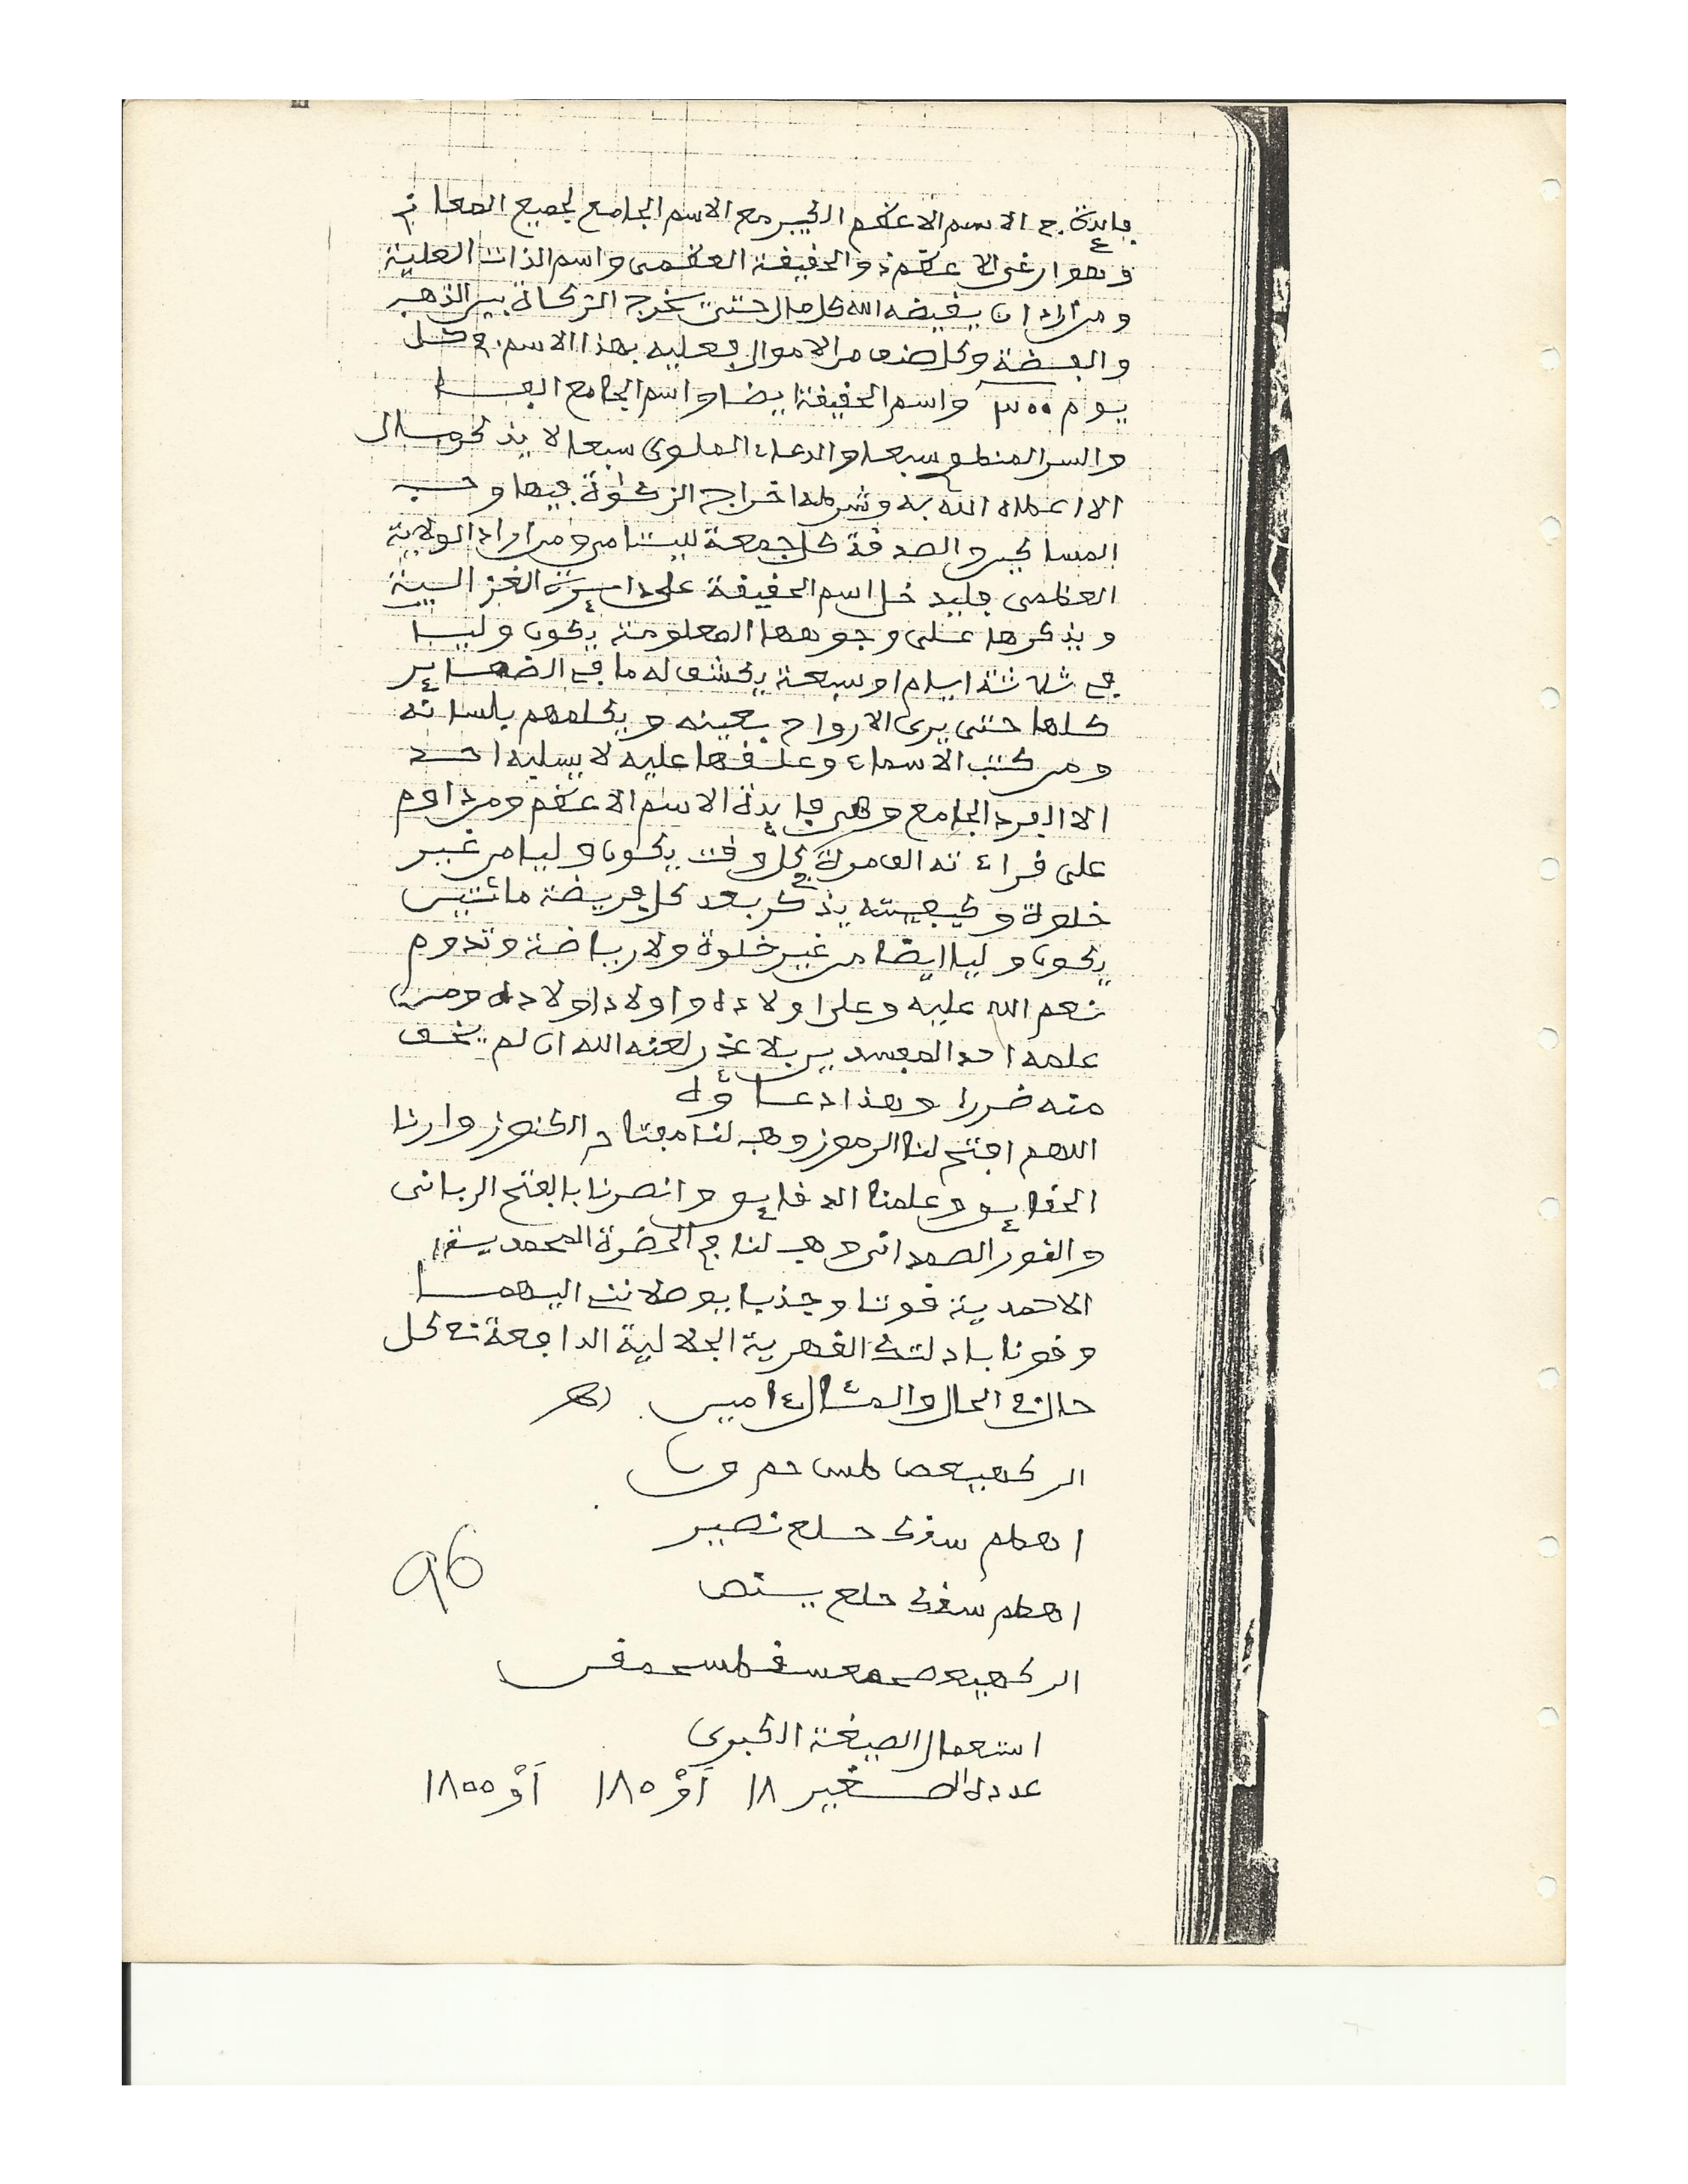 فايدة في الاسم الاعظم الكبير مع الاسم الجامع لجميع المعاني
وهو ارغي الاعظم والحقيقة العظمى واسم الذات العلية
ومن اراد ان يفيضه الله كل مال حتى يخرج الزكاة بين الذهب
والفضة وكل صنف من الاموال فعليه بهذا الاسم في كل
يوم ٣٠٠ واسم الحقيقة ايضا واسم الجامع الفا
والسر المنظم سبعا والدعاء العلوي سبعا لا يذكر مسال
الا اعطاه الله به وشرطه اخراج الزكوة فيها وحب
المساكين والصدقة كل جمعة لليتامى ومن اراد الولاية
العظمى فليدخل اسم الحقيقة على دايرة
ويذكرها على وجوهها المعلومة يكون وليا
في ثلاثة ايام او سبعة يكشف له ما في الضماير
كلها حتى يرى الارواح بعينه ويكلمهم بلسانه
ومن كتب الاسماء وعلقها عليه لا يسلبه احد
الا الفرد الجامع وهي فايدة الاسم الاعظم ومن داوم
على قراءته الف مرة كل وقت يكون وليا من غير
خلوة وكيفيته يذكر بعد كل فريضة مائتين
يكون وليا ايضا من غير خلوة ولا رياضة وتدوم
نعم الله عليه وعلى اولاده واولاد اولاده ومن
علمه احد المفسدين بلا عذر لعنه الله ان لم يخف
منه ضررا وهذا دعاؤه
اللهم افتح لنا الرموز وهب لنا مفتاح الكنوز وارنا
الحقايق وعلمنا الدقايق وانصرنا بالفتح الرباني
والنور الصمداني وهب لنا في الحضرة المحمدية
الاحمدية قوتا وجذبا يوصلانني اليهما
وقونا بادلتك القهرية الجلالية الدافعة في كل
حال في الحال والمئال ءامين اهـ
الر كهيعص طس حم ق ن
اهطم سقك حلع نصير
اهطم سقك حلع يسنص
الر كهيعص حمعسق طسحمقن
استعمال الصيغة الكبرى
عدده الصغير ١٨ أَوْ ١٨٠ أَوْ ١٨٠٠
96